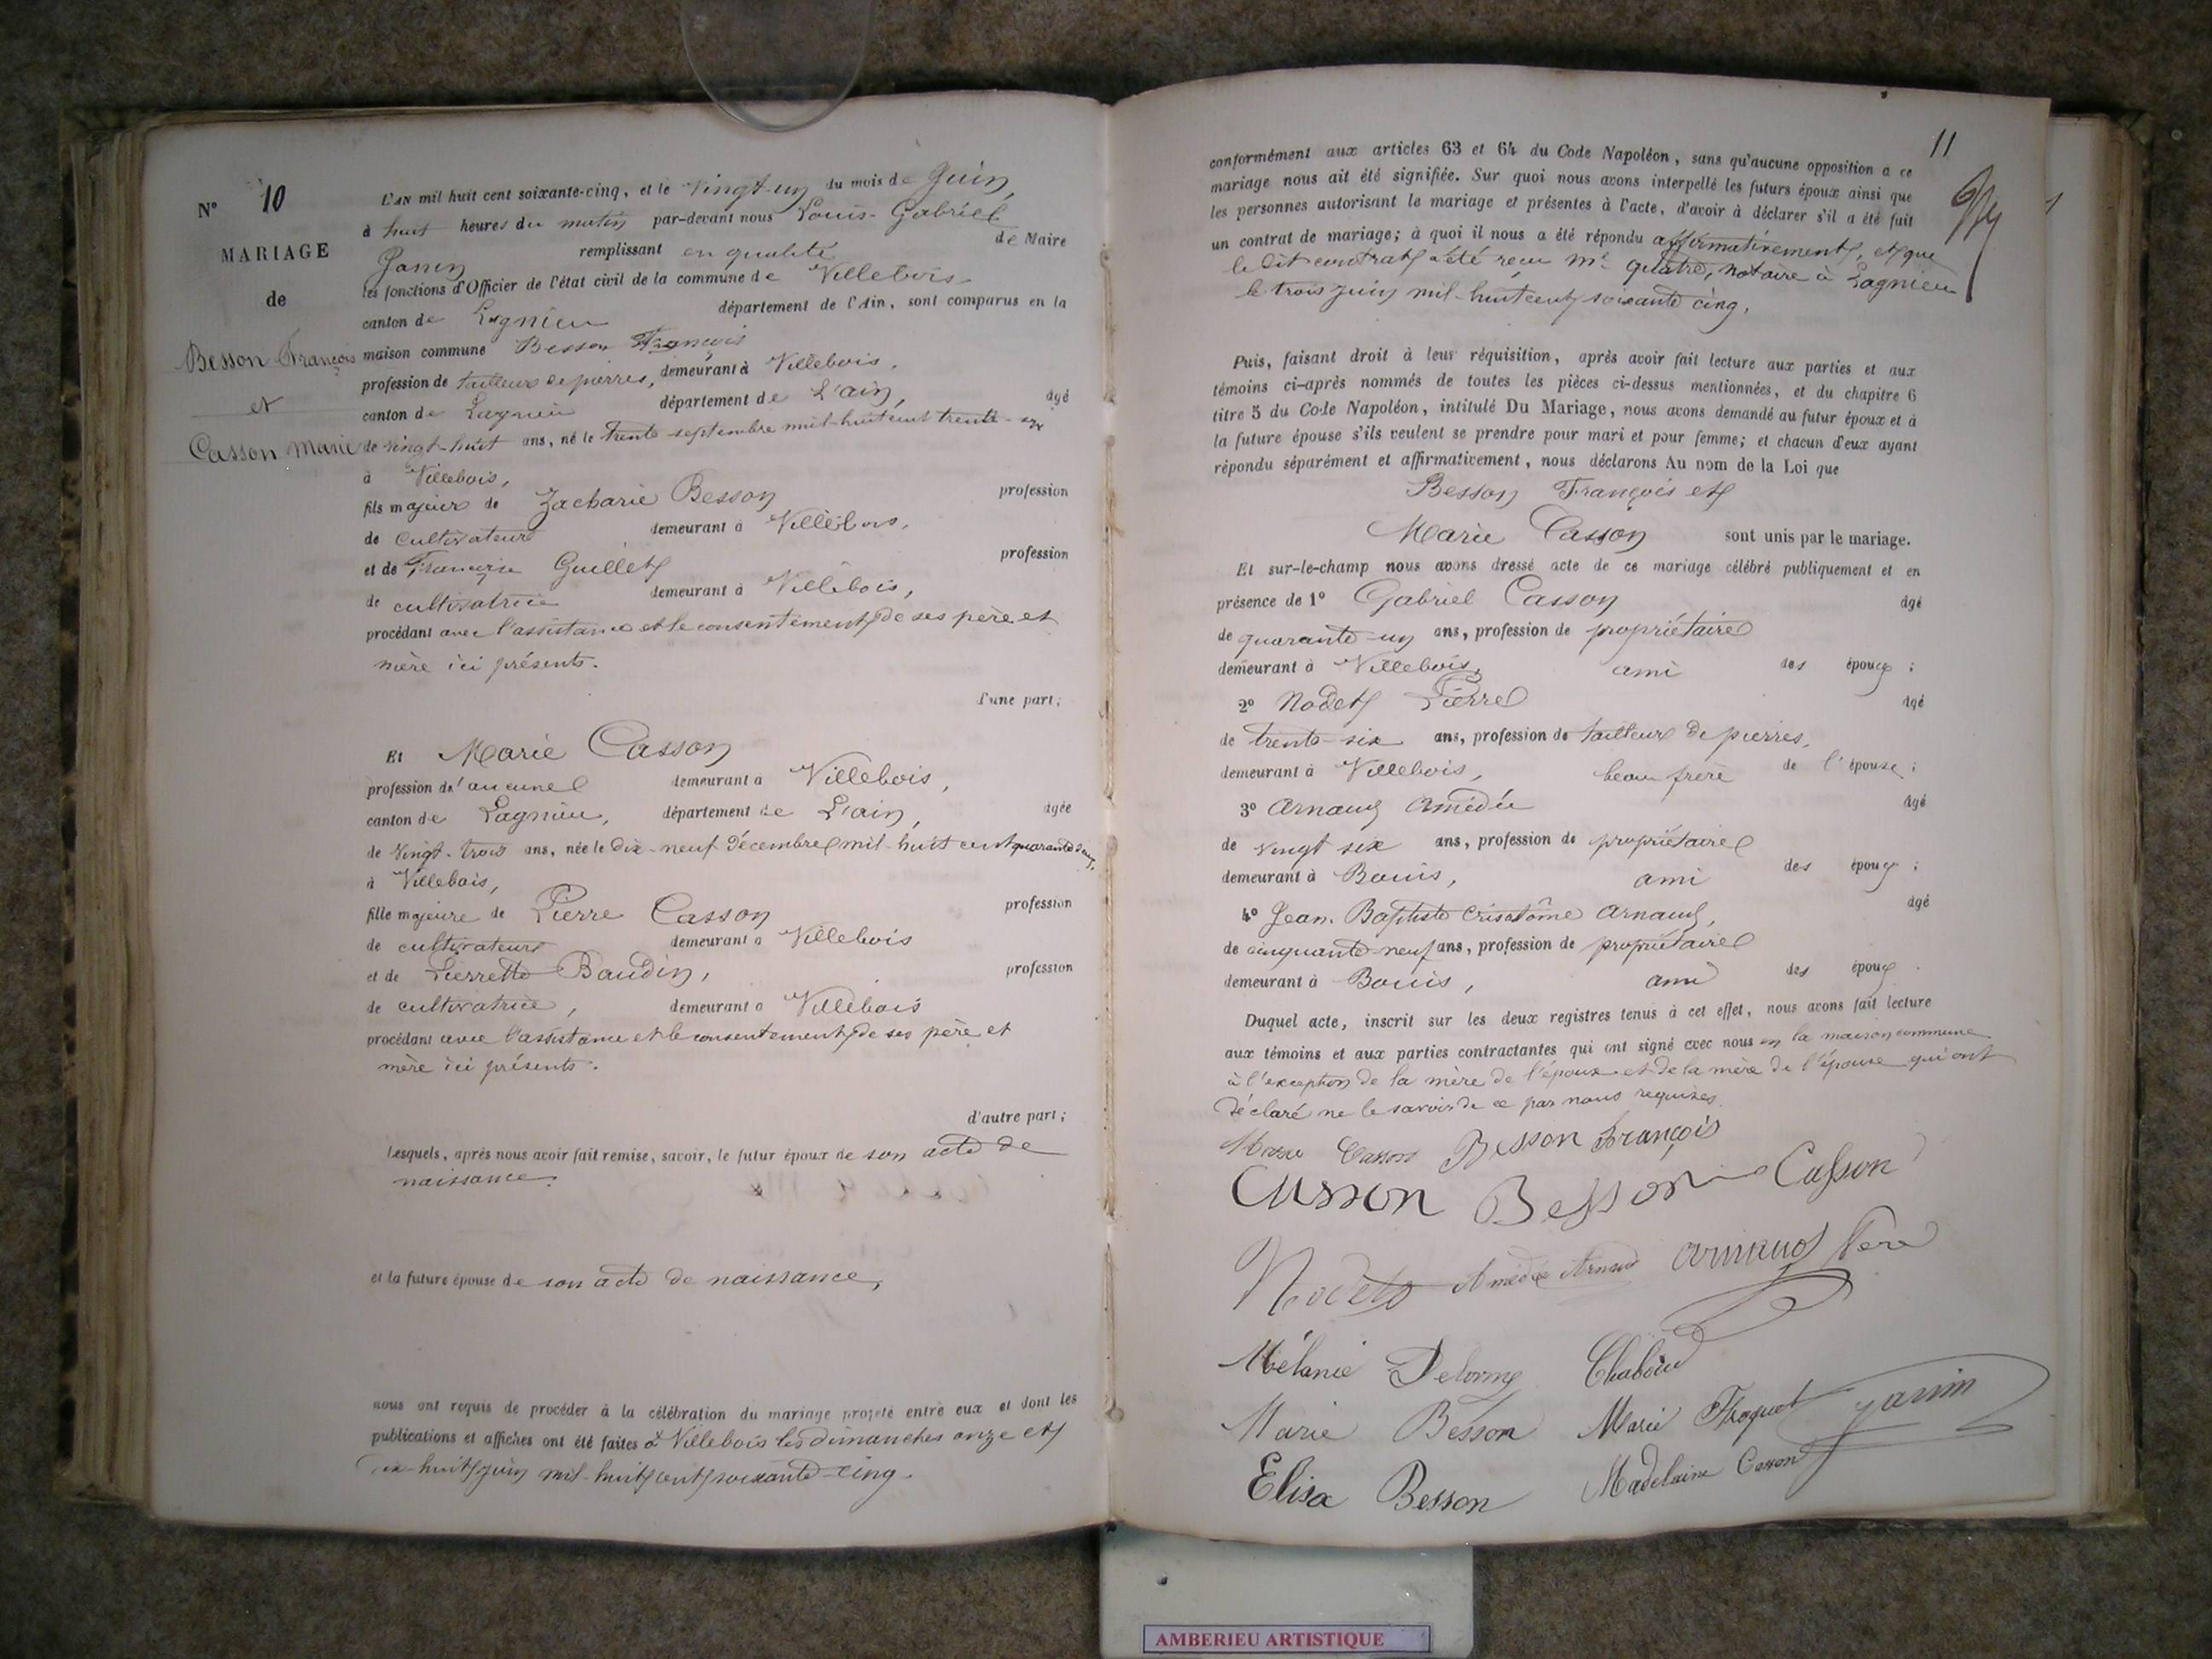 N° 10
MARIAGE
de
Besson François
et
Casson Marie
L'AN mil huit cent soixante-cinq, et le vingt-un du mois de Juin,
à huit heures du matin par-devant nous Louis-Gabriel
Janin remplissant en qualité de Maire
les fonctions d'Officier de l'état civil de la commune de Villebois
canton de Lagnieu département de l'Ain, sont comparus en la
maison commune Besson François
profession de tailleur de pierres, demeurant à Villebois,
canton de Lagnieu département de L'ain, âgé
de vingt-huit ans, né le trente septembre mil-huit cent trente-six
à Villebois,
fils majeur de Zacharie Besson profession
de cultivateur demeurant à Villebois,
et de Françoise Guillet profession
de cultivatrice demeurant à Villebois,
procédant avec l'assistance et le consentement de ses père et
mère ici présents.
d'une part;
Et Marie Casson
profession d'aucune demeurant à Villebois,
canton de Lagnieu, département de L'ain, âgée
de vingt-trois ans, née le dix-neuf décembre mil-huit cent quarante deux,
à Villebois,
fille majeure de Pierre Casson profession
de cultivateur demeurant à Villebois
et de Pierrette Baudin, profession
de cultivatrice, demeurant à Villebois
procédant avec l'assistance et le consentement de ses père et
mère ici présents.
d'autre part;
Lesquels, après nous avoir fait remise, savoir, le futur époux de son acte de
naissance.
et la future épouse de son acte de naissance,
nous ont requis de procéder à la célébration du mariage projeté entre eux et dont les
publications et affiches ont été faites à Villebois les dimanches onze et
dix-huit juin mil-huit cent soixante-cinq.
11
conformément aux articles 63 et 64 du Code Napoléon, sans qu'aucune opposition à ce
mariage nous ait été signifiée. Sur quoi nous avons interpellé les futurs époux ainsi que
les personnes autorisant le mariage et présentes à l'acte, d'avoir à déclarer s'il a été fait
un contrat de mariage; à quoi il nous a été répondu affirmativement, et que
le dit contrat a été reçu Me quatre, notaire à Lagnieu
le trois juin mil-huit cent soixante cinq,
Puis, faisant droit à leur réquisition, après avoir fait lecture aux parties et aux
témoins ci-après nommés de toutes les pièces ci-dessus mentionnées, et du chapitre 6
titre 5 du Code Napoléon, intitulé Du Mariage, nous avons demandé au futur époux et à
la future épouse s'ils veulent se prendre pour mari et pour femme; et chacun d'eux ayant
répondu séparément et affirmativement, nous déclarons Au nom de la Loi que
Besson François et
Marie Casson sont unis par le mariage.
Et sur-le-champ nous avons dressé acte de ce mariage célébré publiquement et en
présence de 1° Gabriel Casson âgé
de quarante-un ans, profession de propriétaire
demeurant à Villebois, ami des époux;
2° Nodet Pierre âgé
de trente-six ans, profession de tailleur de pierres,
demeurant à Villebois, beau frère de l'épouse;
3° Arnaud Amédée âgé
de vingt six ans, profession de propriétaire
demeurant à Bouis, ami des époux;
4° Jean-Baptiste Crisostôme Arnaud, âgé
de cinquante-neuf ans, profession de propriétaire
demeurant à Bouis, ami des époux.
Duquel acte, inscrit sur les deux registres tenus à cet effet, nous avons fait lecture
aux témoins et aux parties contractantes qui ont signé avec nous en la maison commune
à l'exception de la mère de l'époux et de la mère de l'épouse qui ont
déclaré ne le savoir de ce par nous requises.
Marie Casson Besson François
Casson Besson Casson
Nodet Amédée Arnaud arnaud Père
Mélanie Delorme Chaboud
Marie Besson Marie Troquet Janin
Elisa Besson Madelaine Casson
AMBERIEU ARTISTIQUE